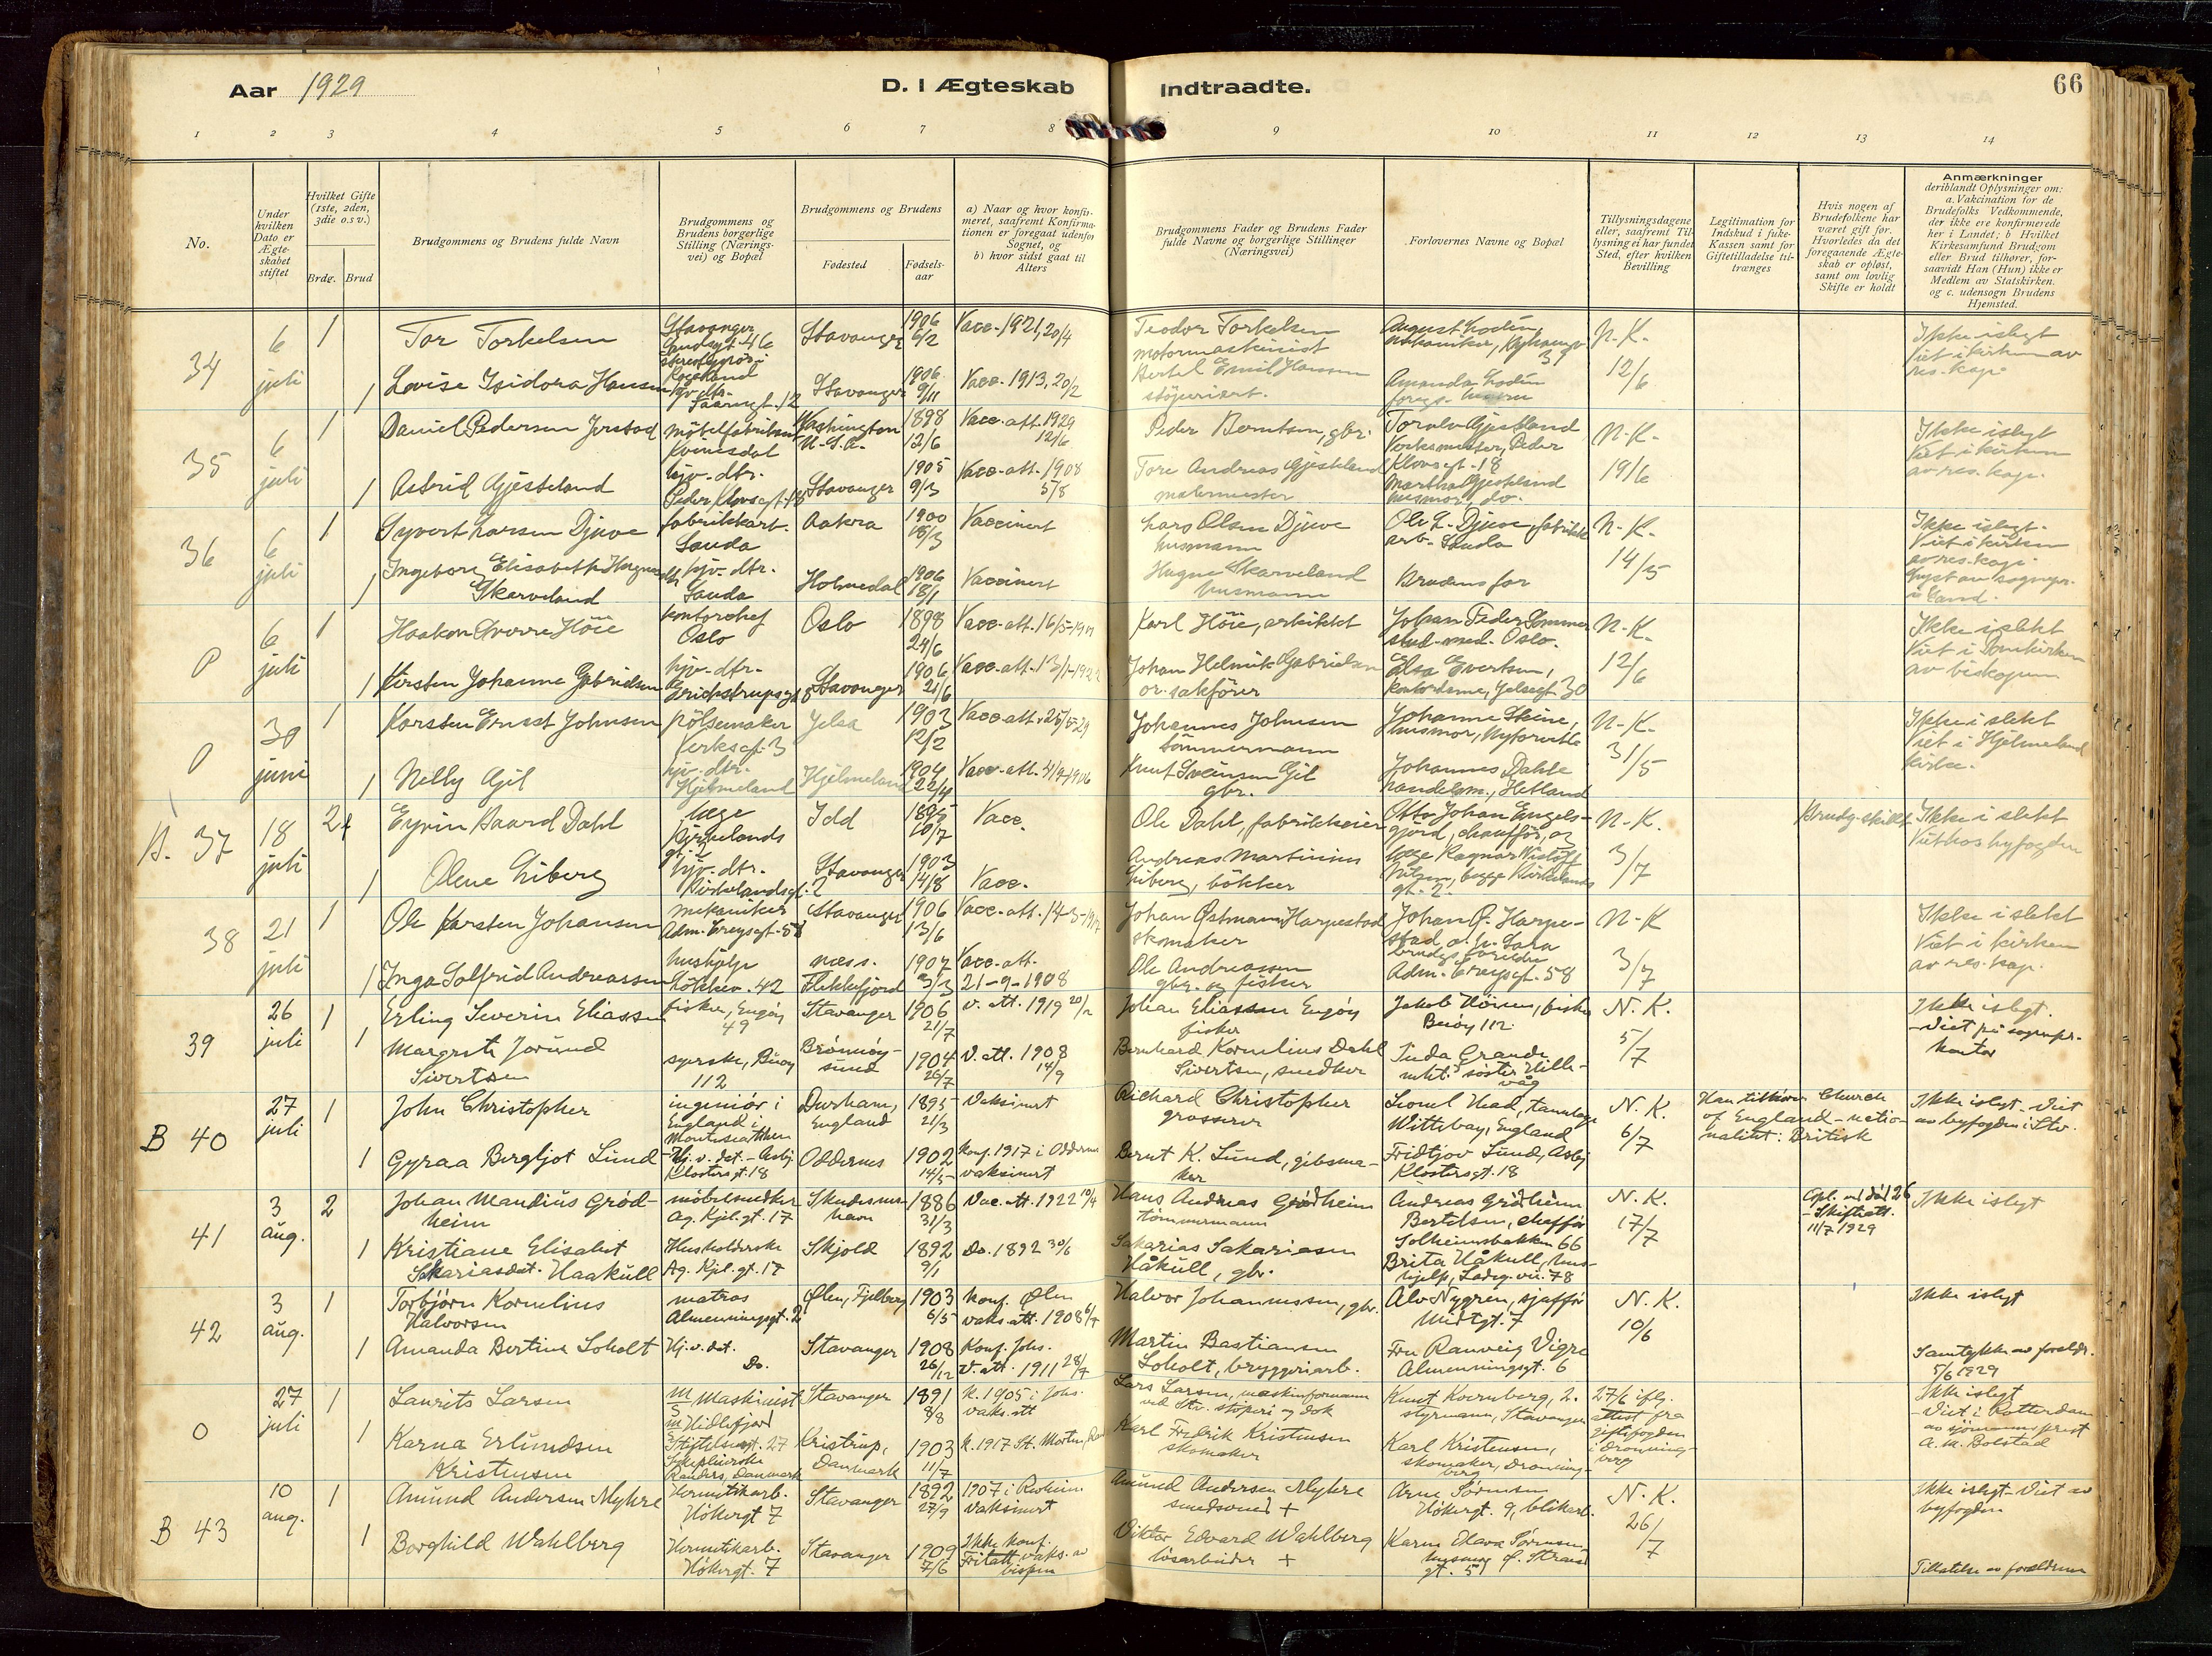 Aar 1929
D. I Ægteskab
Indtraadte.
66
1 2 3 4 5 6 7 8 9 10 11 12 13 14
No.
Under hvilken Dato er Ægteskabet stiftet
Hvilket Gifte (1ste, 2den, 3die o.s.v.)
Brdg. Brud
Brudgommens og Brudens fulde Navn
Brudgommens og Brudens borgerlige Stilling (Næringsvei) og Bopæl
Brudgommens og Brudens
Fødested
Fødselsaar
a) Naar og hvor konfirmeret, saafremt Konfirmationen er foregaat udenfor Sognet, og
b) hvor sidst gaat til Alters
Brudgommens Fader og Brudens Fader fulde Navne og borgerlige Stillinger (Næringsvei)
Forlovernes Navne og Bopæl
Tillysningsdagene eller, saafremt Tillysning ei har fundet Sted, efter hvilken Bevilling
Legitimation for Indskud i fuke-Kassen samt for Giftetilladelse tiltrænges
Hvis nogen af Brudefolkene har været gift før. Hvorledes da det foregaaende Ægteskab er opløst, samt om lovlig Skifte er holdt
Anmærkninger
deriblandt Oplysninger om: a. Vakcination for de Brudefolks Vedkommende, der ikke ere konfirmerede her i Landet; b Hvilket Kirkesamfund Brudgom eller Brud tilhører, forsaavidt Han (Hun) ikke er Medlem av Statskirken. og c. udensogn Brudens Hjemsted.
34
6 juli
1
Tor Torkelsen
Stavanger
Stavanger
1906 6/2
Vacc. 1921, 20/4
Teodor Torkelsen
motormaskinist
N.K.
12/6
Ikke i slegt
Viet i kirken av
res. kap.
1
Lovise Isidora Hansen
Stavanger
1906 9/11
Vacc. 1913, 20/2
Bertel Emil Hansen
Amanda Lodén
35
6 juli
1
Daniel Pedersen Jerstad
Kvinesdal
Washington
U.S.A.
1898 12/6
Vacc. att. 1929 12/6
Peder Berntsen, gbr.
Torvald Gjesteland
Verksmester, Peder
Klovsgt. 18
N.K.
19/6
Ikke i slegt
Viet i kirken
av res. kap.
1
Astrid Gjesteland
hjv. dtr.
Peder Klovsgt. 18
Stavanger
1905 9/3
Vacc. att. 1908 5/8
Tore Andreas Gjesteland
malermester
Martha Gjesteland
husmor, do.
36
6 juli
1
Syvert Larsen Djuve
fabrikkarb.
Sauda
Aakra
1900 18/3
Vaccinert
Lars Olsen Djuve
husmann
Ole L. Djuve, fabrikk
arb. Sauda
N.K.
14/5
Ikke i slegt.
Viet i kirken
av res. kap.
1
Ingeborg Elisabeth
Skarveland
hjv. dtr.
Sauda
Holmedal
1906 18/1
Vaccinert
Hugne Skarveland
husmann
Brudens far
0
6 juli
1
Haakon Sverre Höie
kontorchef
Oslo
Oslo
1898 24/6
Vacc. att. 16/5
Karl Höie, arkitekt
Johan Peder Sommer
stud. med. Oslo.
N.K.
12/6
Ikke i slekt
Viet i Domkirken
av biskopen
1
Kirsten Johanne Gabrielsen
hjv. dtr.
Stavanger
1906 21/6
Vacc. att. 13/1-1922
Johan Helmik Gabrielsen
or. sakförer
Elsa Evertsen,
kontordame, Jelsagt. 30
0
30 juni
1
Karsten Ernst Johnsen
pölsemaker
Jelsa
1903 12/2
Vacc. att. 25/5-29
Johannes Johnsen
tömmermann
Johanne Skeie,
husmor,
N.K.
31/5
Ikke i slekt
Viet i Hjelmeland
kirke.
1
Nelly Gjil
hjv. dtr.
Hjelmeland
Hjelmeland
1904 22/4
Vacc. att. 4/9-1906
Knut Sveinsen Gjil
gbr.
Johannes Dahle
handelsm., Hetland
B. 37
18 juli
2
Eyvin Baard Dahl
læge
Kirkelands
gt. 2
Idd
1895 10/7
Vacc.
Ole Dahl, fabrikkeier
Otto Johan Engels-
gjord, chauffør, og
N.K.
3/7
Brudg. skilt
Ikke i slekt
Viet hos byfogden
1
Olene Liberg
hjv. dtr.
Kirkelandsgt. 2
Stavanger
1903 14/8
Vacc.
Andreas Martinius
Liberg, bökker
læge Ragnar Wisløff
Nilsen, begge Kirkelands
gt. 2.
38
21 juli
1
Ole Karsten Johansen
mekaniker
Stavanger
1906 13/6
Vacc. att. 14-3-1917
Johan Østman Harpestad
skomaker
Johan Ø. Harpe-
stad
brudg. foreldre
Adm. Crugsgt. 58
N.K.
3/7
Ikke i slekt
Viet i kirken
av res. kap.
1
Inga Solfrid Andreassen
hushjelp
næss.
Flekkefjord
1907 3/3
Vacc. att.
21-9-1908
Ole Andreassen
gbr. og fisker
39
26 juli
1
Erling Severin Eliassen
fisker, Engöy
49
Stavanger
1906 21/7
v. att. 1919
Johan Eliassen Engöy
fisker
Buöy 112
N.K.
5/7
Ikke i slegt.
- Viet på sognepr.
kontor
1
Margrete Jorund
Sivertsen
syerske, Buøy
112
Brönnöy-
sund
1904 26/7
V. att. 1908 14/9
Bernhard Kornelius Dahl
Sivertsen, snedker
søster Hille-
våg
B 40
27 juli
1
John Christopher
ingeniör i
England
Durham,
England
1895 21/3
Vaksinert
Richard Christopher
grosserer
Lionel Head, tannlege
Wittebay, England
N.K.
6/7
Han tilhører Church
of England - natio-
nalitet: Britisk
Ikke i slegt - Viet
av byfogden i Stv.
1
Gyraa Bergljot Lund
Hj.v. dat. - Asbj.
Klostersgt. 18
Oddernes
1902 14/5
Konf. 1917 i Oddernes
vaksinert
Bernt K. Lund, gibsma-
ker
Fridtjov Lund, Asbj.
Klostersgt. 18
41
3 aug.
2
Johan Maudius Grød-
heim
möbelsnedker
Ag. Kjel. gt. 17
Skudesnes-
havn
1886 31/3
Vac. att. 1922 10/4
Hans Andreas Grødheim
tömmermann
Andreas Grödheim
Bertelsen, chaffør
Solheimsbakken 66
N.K.
17/7
- Skifteatt.
11/7 1929
Ikke i slegt
1
Kristiane Elisabet
Sakariasdat. Haakull
Husholderske
Ag. Kjel. gt. 17
Skjold
1892 9/1
Do. 1892 30/6
Sakarias Sakariasen
Håkull, gbr.
Brita Håkull, hus-
hjelp, Ladeg. vei. 78
42
3 aug.
1
Torbjörn Kornelius
Halvorsen
matros
Almenningsgt. 2
Ølen, Fjelberg
1903 6/5
Konf. Ølen
vaks. att. 1908
Halvor Johannessen, gbr.
Alv Nygren, sjaffør
Midtgt. 7
N.K.
10/6
Ikke i slegt
1
Amanda Bertine Soholt
Hj.v. dat.
Do.
Stavanger
1908 26/12
Konf. Johs.
V. att. 1911 28/7
Martin Bastiansen
Soholt, bryggeriarb.
Fru Ranveig Vigre
Almenningsgt. 6
Samtykke av foreldr.
5/6 1929
0
27 juli
1
Laurits Larsen
Maskinist
Stavanger
1891 8/8
K. 1905 i Johs.
vaks. att
Lars Larsen, maskinformann
ved Stv. stöperi og dok
Knut Kvernberg, 2.
styrmann, Stavanger
27/6 iflg.
attest fra
giftefogden
i Dronning-
borg
Ikke i slegt
- Viet i Rotterdam
av sjömannsprest
A. M. Bolstad
1
Karna Erlundsen
Kristensen
Randers, Danmark
Kristrup,
Danmark
1903 11/7
K. 1917 St. Morten,
Karl Fredrik Kristensen
skomaker
Karl Kristensen,
skomaker, Dronning-
borg
B 43
10 aug.
1
Amund Andersen Myhre
Hermetikarb.
Hökergt 7
Stavanger
1892 27/9
1907 i
Vaksinert
Amund Andersen Myhre
smedsvend +
Arne Sørensen
Hökergt. 9, blikarb.
N.K.
26/7
Ikke i slegt - Viet av
byfogden
1
Borghild Wahlberg
Hermetikarb.
Hökergt. 7
Stavanger
1909 7/6
Ikke konf.
Fritatt, vaks. av
bispen
Viktor Edvard Wahlberg
løsarbeider +
Karen
husmor
gt. 51
Tillatelse av foreldrene